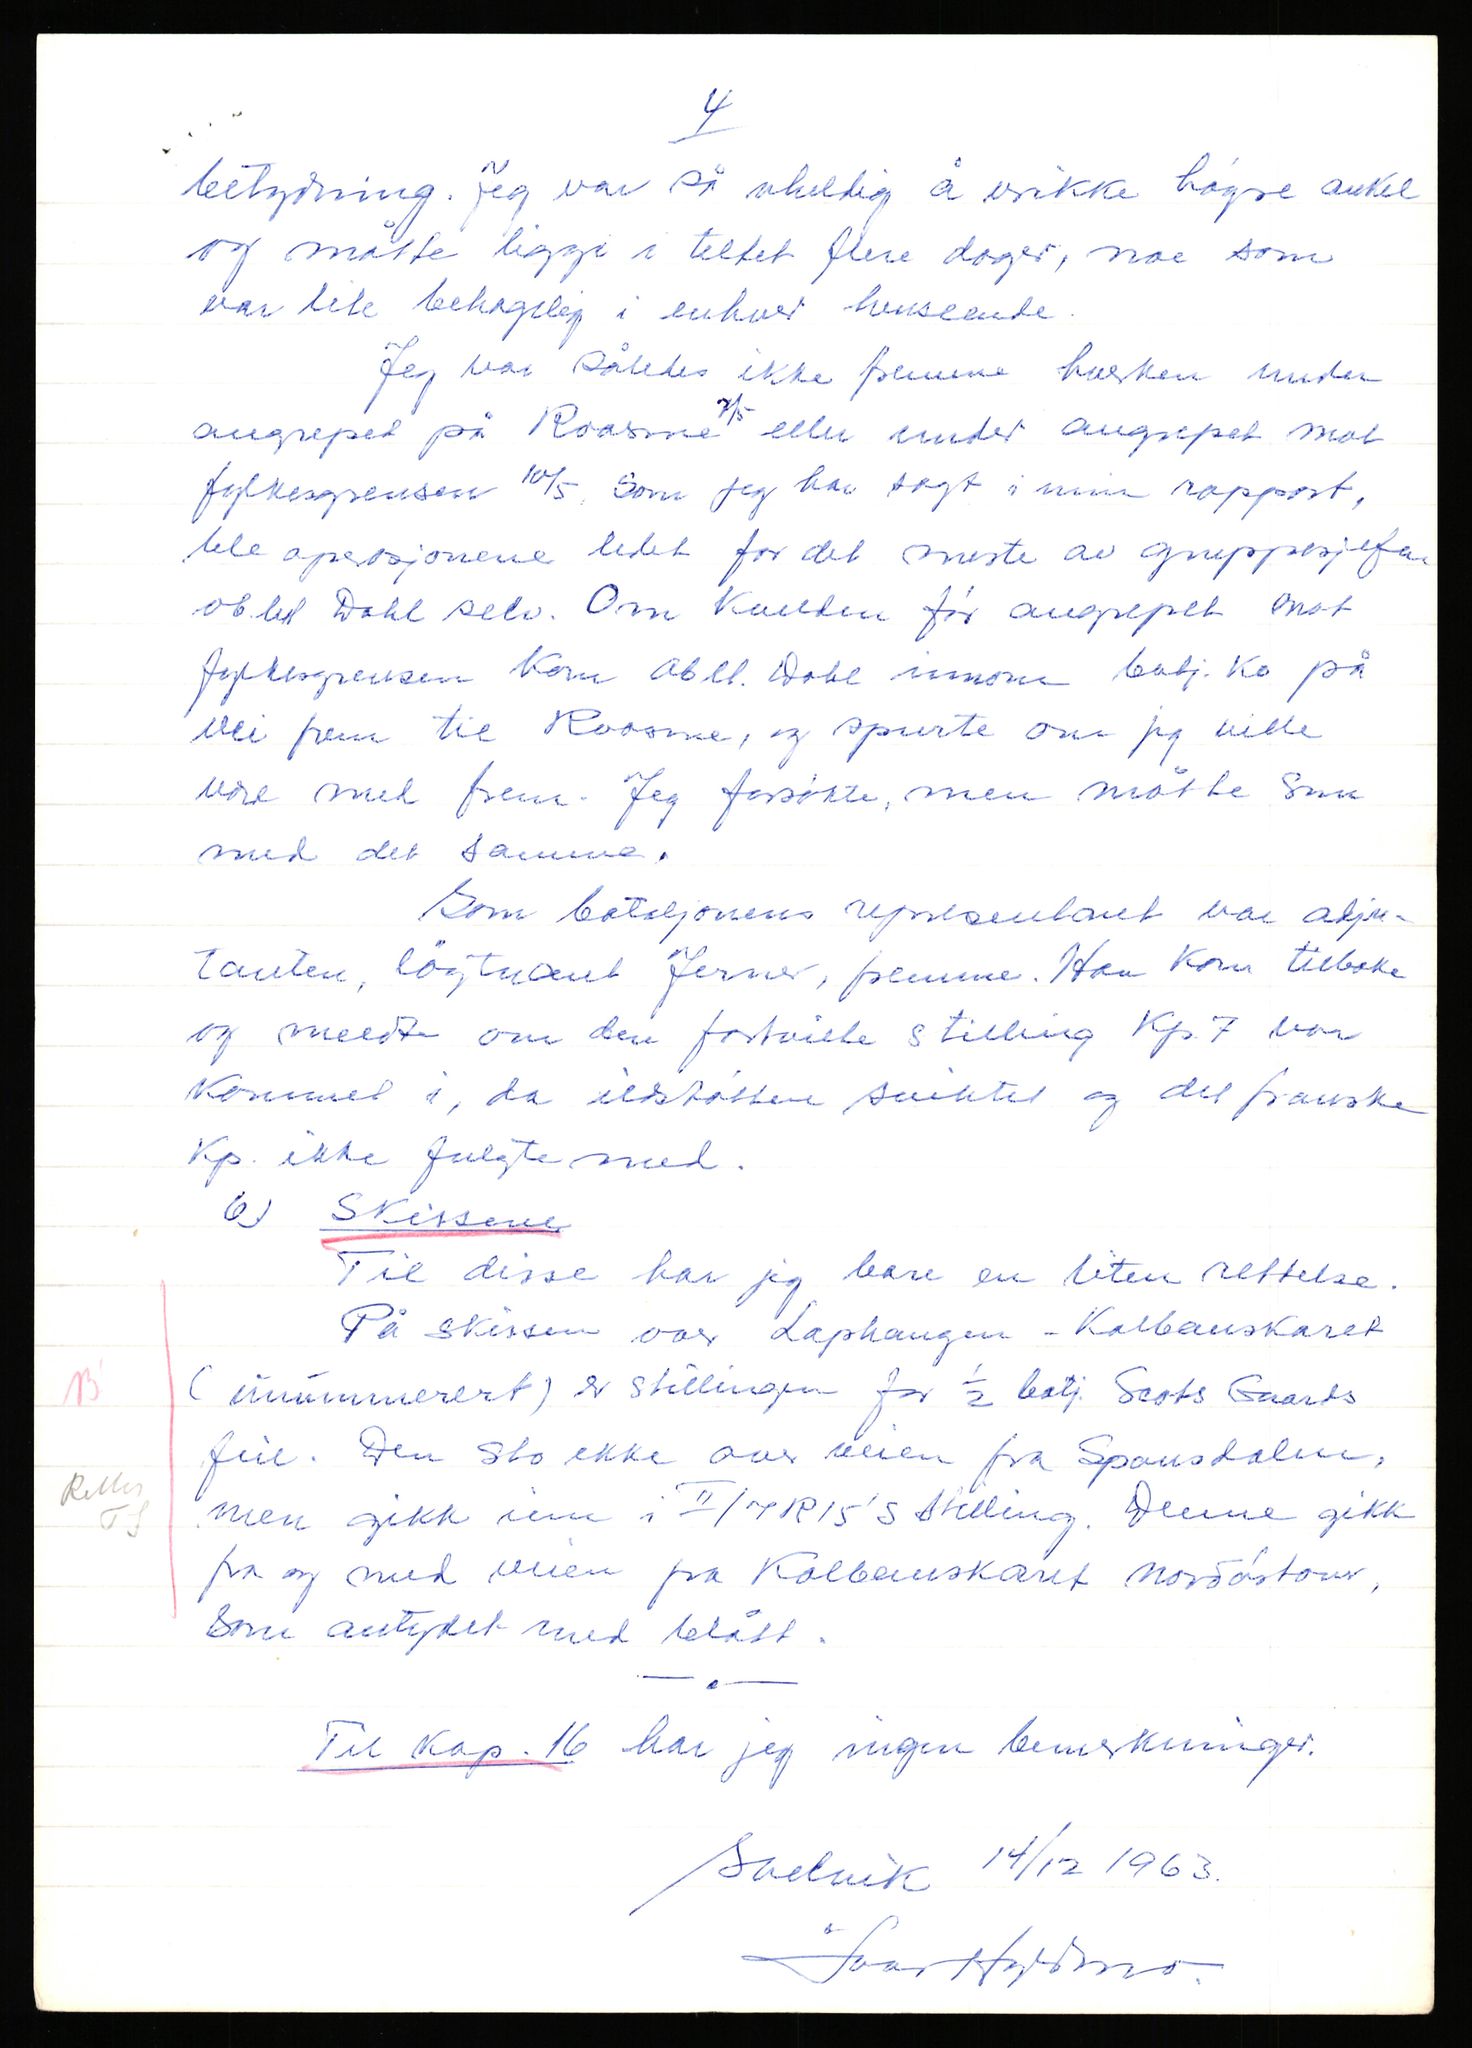 4
betydning. Jeg var så uheldig å vrikke högre ankel
og måtte ligge i teltet flere dager, noe som
var lite behagelig i enhver henseende.
Jeg var således ikke fremme hverken under
angrepet på Roasme 7/5 eller under angrepet mot
fylkesgrensen 10/5. Som jeg har sagt i min rapport,
ble operasjonene ledet for det meste av gruppesjefen
ob.lt Dahl selv. Om kvelden før angrepet mot
fylkesgrensen kom oblt. Dahl innom batj. ko på
vei frem til Roasme, og spurte om jeg ville
være med frem. Jeg forsøkte, men måtte snu
med det samme.
Som bataljonens representant var adju-
tanten, löytnant Jerner, fremme. Han kom tilbake
og meldte om den fortvilte stilling Kp. 7 var
kommet i, da ildstötten sviktet og det franske
Kp. ikke fulgte med.
6) Skissene
Til disse har jeg bare en liten rettelse.
På skissen over Laphaugen - Kolbanskaret
(unummerert) er stillingen for 1/2 batj. Scots Guards
feil. Den sto ikke over veien fra Spansdalen,
men gikk inn i II/IR 15's stilling. Denne gikk
fra og med veien fra Kolbanskaret nordöstover,
som antydet med blått.
— . —
Til kap. 16 har jeg ingen bemerkninger.
14/12 1963.
Ivar Hyldmo.